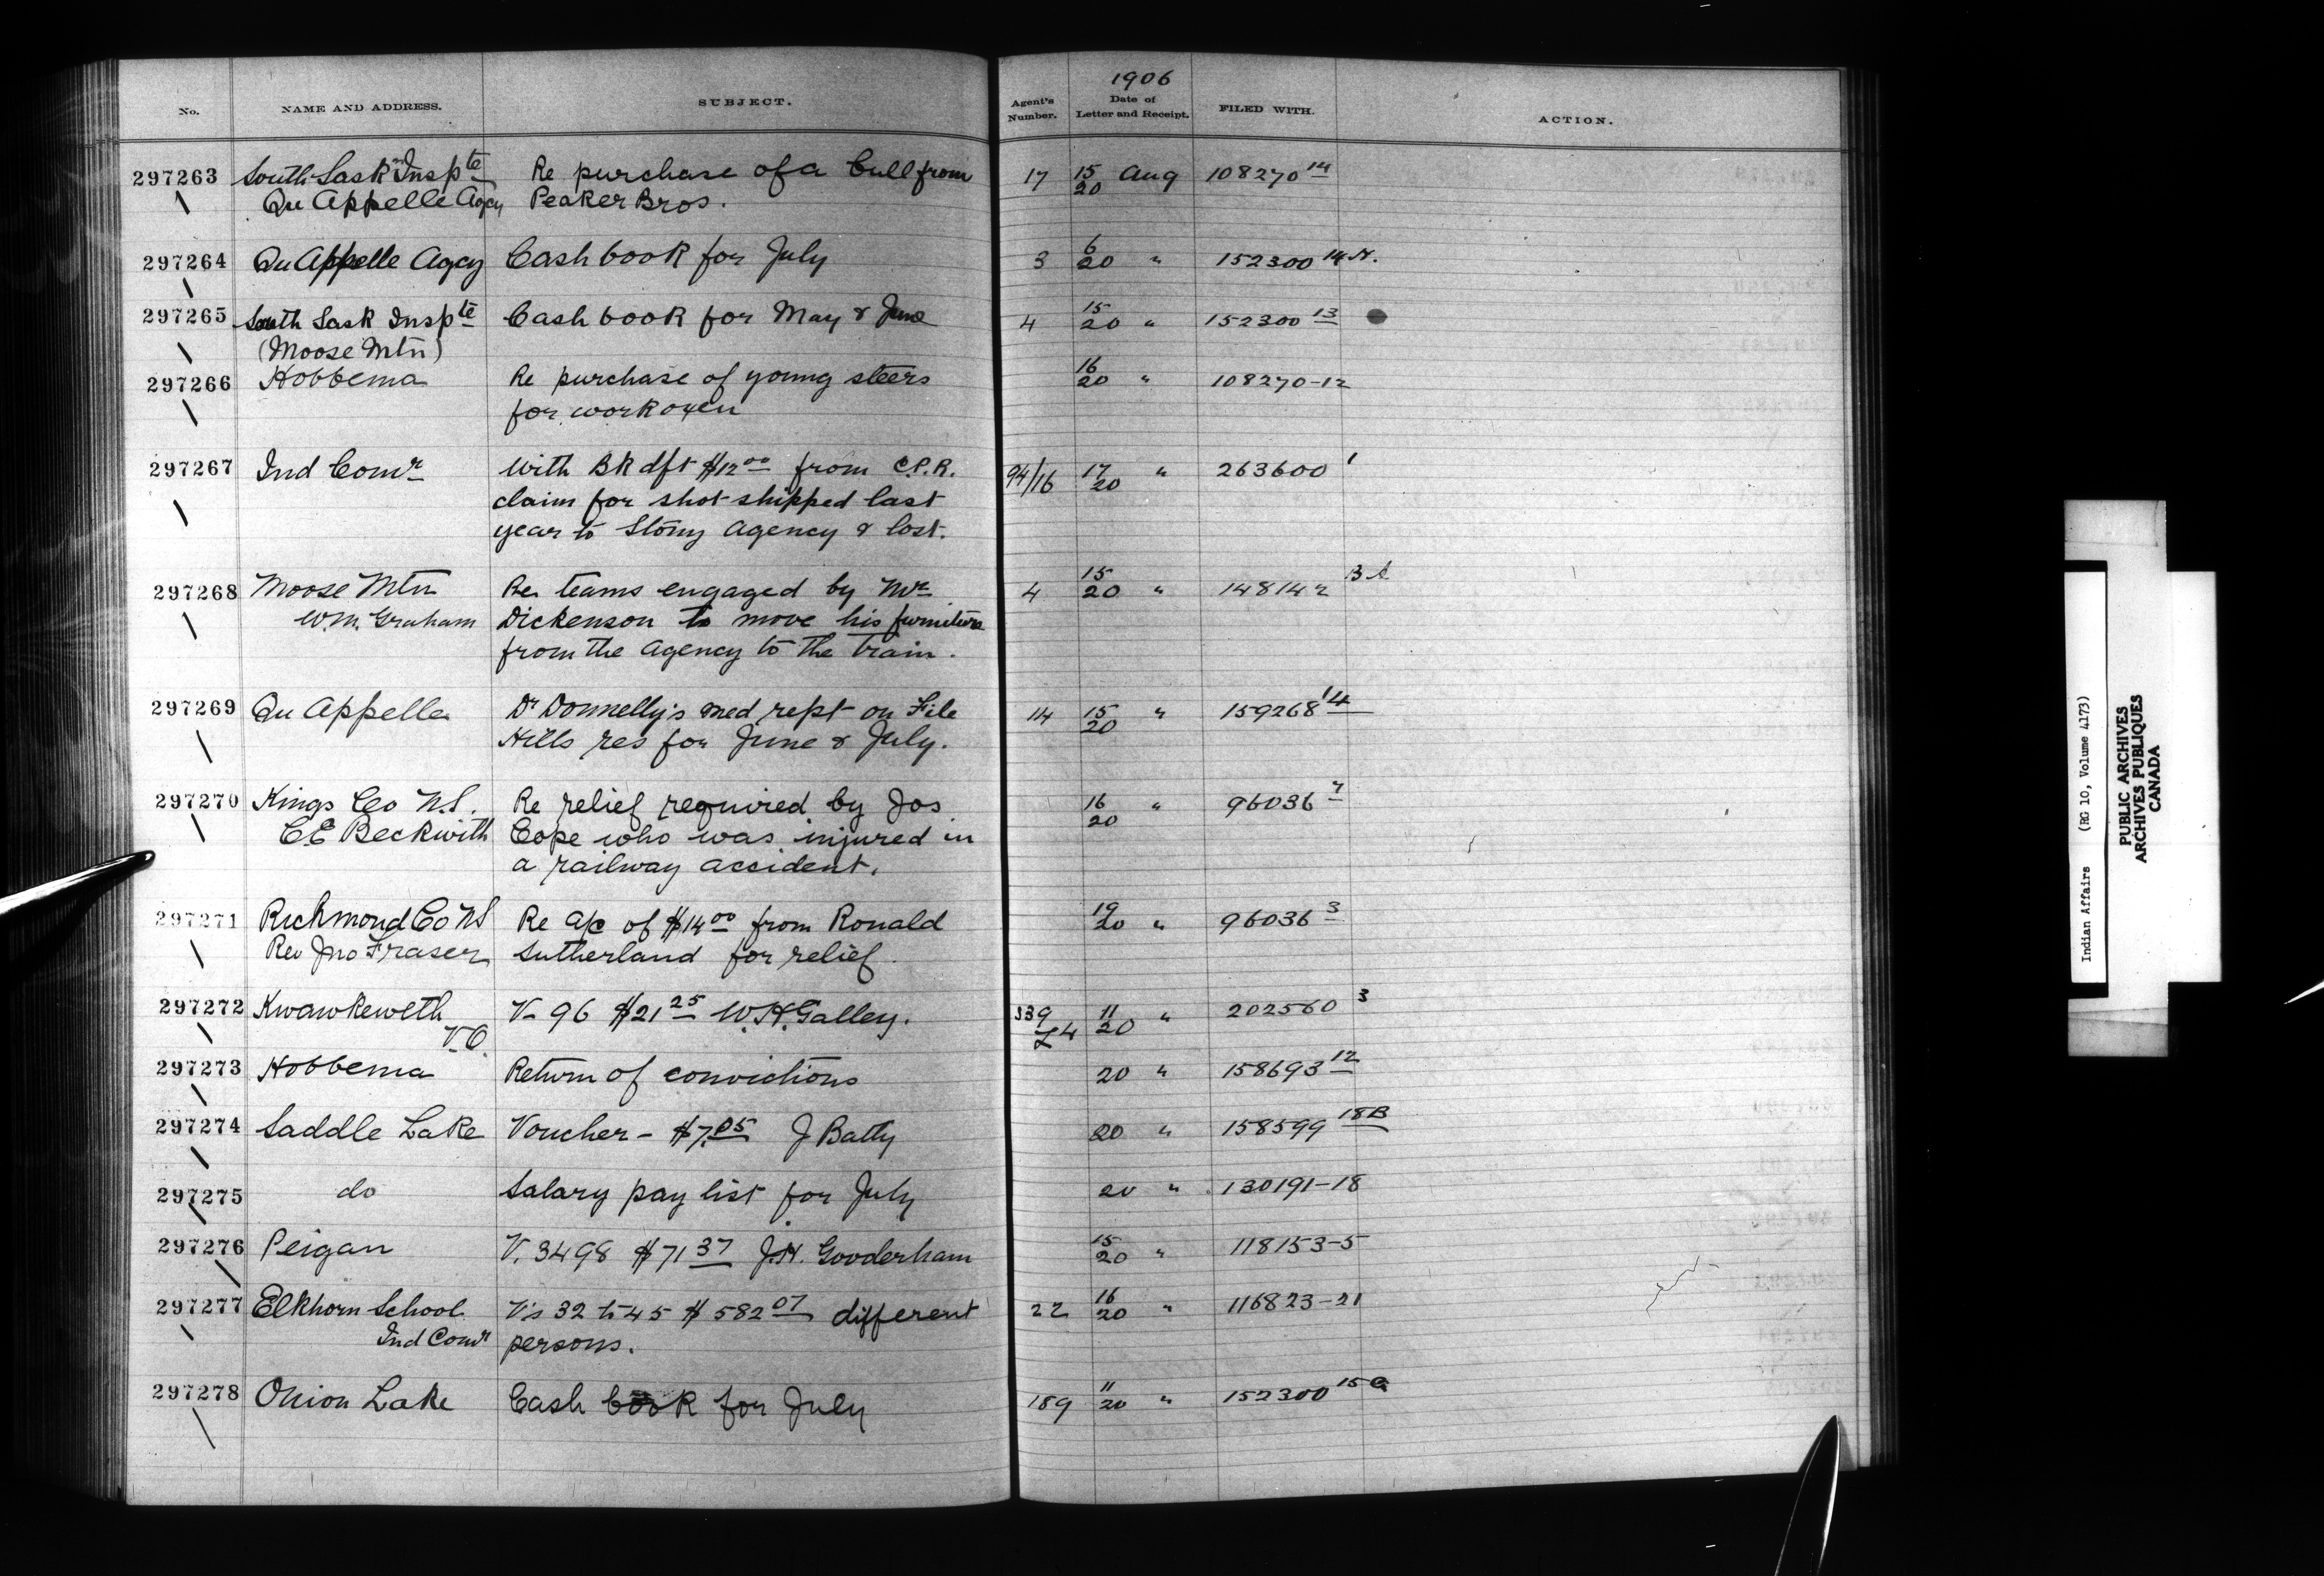 1906
No. NAME AND ADDRESS. SUBJECT. Agent's Number. Date of Letter and Receipt. FILED WITH. ACTION.
297263 South Sask Inspte Re purchase of a bull from 17 15/20 Aug 108270 14
Qu'Appelle Agcy Peaker Bros.
297264 Qu Appelle Agcy Cash book for July 3 6/20 " 152300 14 A.
297265 South Sask Inspte Cash book for May & June 4 15/20 " 152300 13
(Moose Mtn)
297266 Hobbema Re purchase of young steers 16/20 " 108270-12
for work oxen
297267 Ind Comr With Bk dft $12 00 from C.P.R. 94/16 17/20 " 263600 1
claim for shot shipped last
year to Stony Agency & lost.
297268 Moose Mtn Re teams engaged by Mr 4 15/20 " 148142
W.M. Graham Dickenson to move his furniture
from the Agency to the train.
297269 Qu Appelle Dr Donnelly's med rept on File 14 15/20 " 159268 14
Hills res for June & July.
297270 Kings Co N.S. Re relief required by Jos 16/20 " 96036
C.E Beckwith Cope who was injured in
a railway accident.
297271 Richmond Co NS Re a/c of $14 00 from Ronald 19/20 " 96036 3
Rev Jno Fraser Sutherland for relief.
297272 Kwawkewlth V- 96 $21 25 W.H. Galley. 339 11/20 " 202560 3
V.O. L4
297273 Hobbema Return of convictions 20 " 158693 12
297274 Saddle Lake Voucher - $7.05 J Batty 20 " 158599 18B
297275 do Salary pay list for July 20 " 130191-18
297276 Peigan V. 3498 $71 37 J.H. Gooderham 15/20 " 118153-5
297277 Elkhorn School V's 32 to 45 $582 07 different 22 16/20 " 116823-21
Ind Comr persons.
297278 Onion Lake Cash book for July 189 11/20 " 152300 15
Indian Affairs (RG 10, Volume 4173)
PUBLIC ARCHIVES
ARCHIVES PUBLIQUES
CANADA